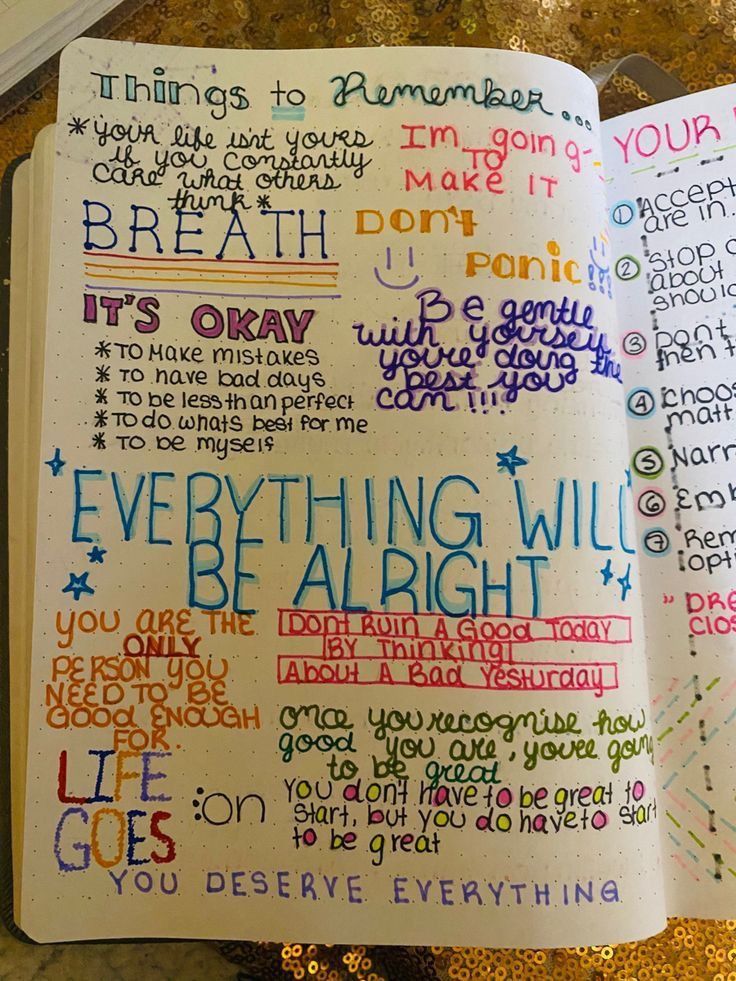 Things to Remember...
*your life isnt yours
if you constantly
care what others
think*
Im going
TO
MAKE IT
BREATH
DON'T
PANIC!!!
IT'S OKAY
* TO MAKE MISTAKES
* TO have bad days
* TO be less than perfect
* TO do whats best for me
* TO be myself
Be gentle
with yourself
you're doing the
best you
can!!!
EVERYTHING WILL
BE ALRIGHT
YOU ARE THE
ONLY
PERSON YOU
NEED TO BE
GOOD ENOUGH
FOR.
Dont Ruin A Good Today
By Thinking
About A Bad Yesturday
once you recognise how
good you are, you're going
to be great
LIFE
GOES
:on
You don't have to be great to
start, but you do have to start
to be great
YOU DESERVE EVERYTHING
YOUR
1 Accept
are in..
2 Stop
about
3 Dont
4
5
6
7